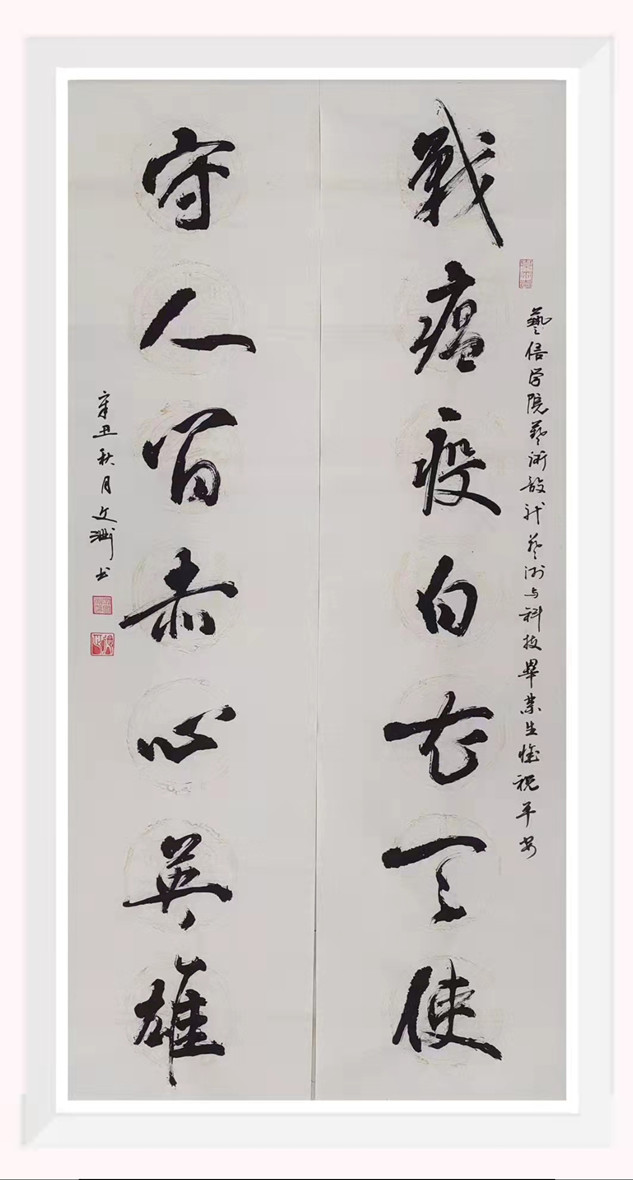 戰瘟疫白衣天使
学院藝術設計藝術与科技畢業生祝平安
守人間赤心英雄
辛丑秋月文洲书